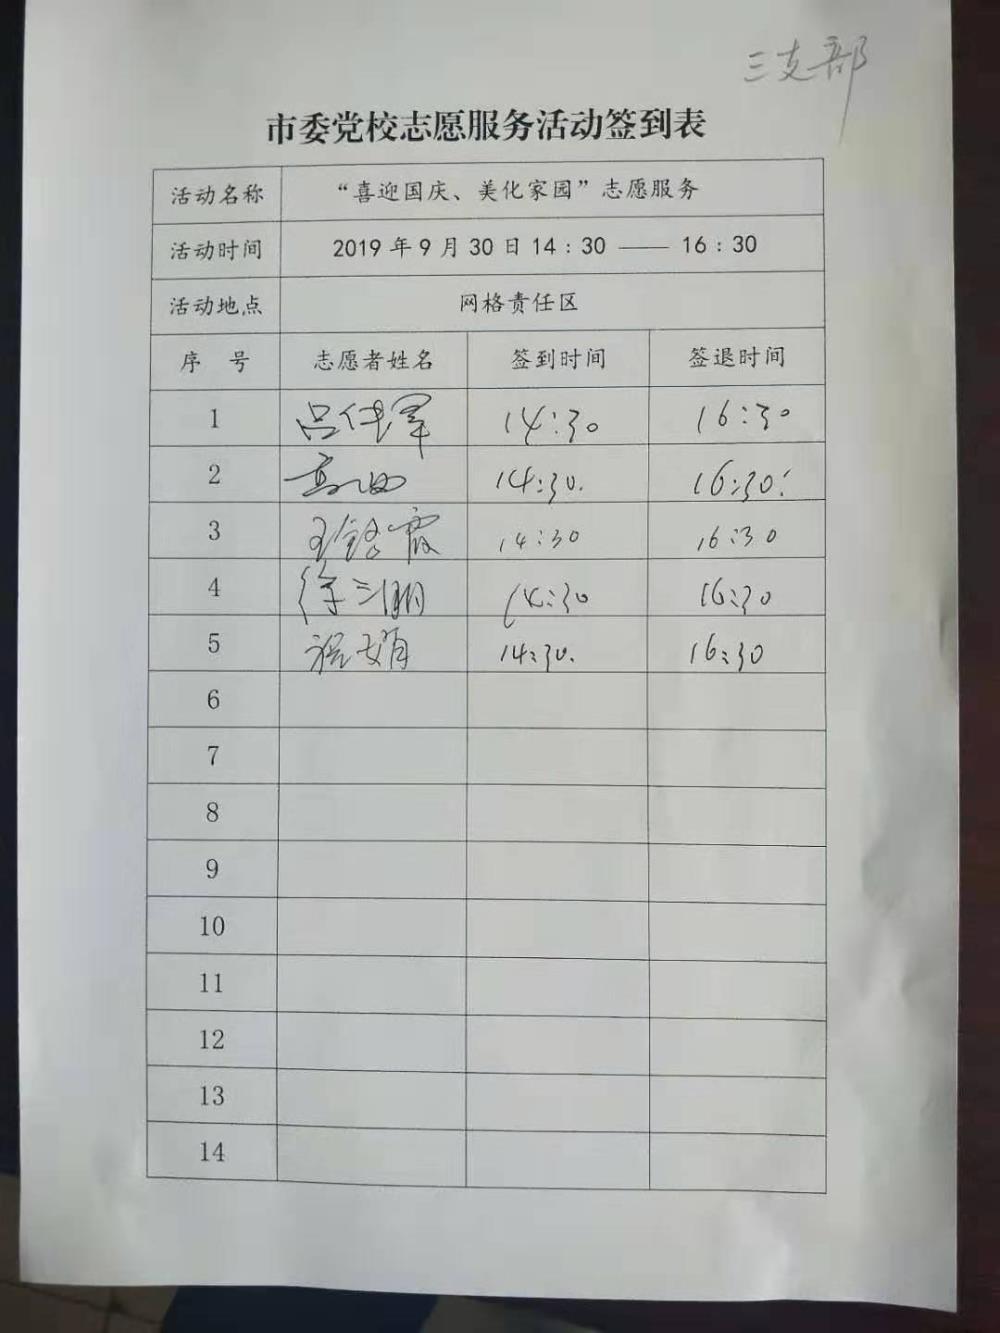 三支部
市委党校志愿服务活动签到表
活动名称 “喜迎国庆、美化家园”志愿服务
活动时间 2019年9月30日14：30 —— 16：30
活动地点 网格责任区
序 号 志愿者姓名 签到时间 签退时间
1 吕伟军 14:30 16:30
2 14:30. 16:30
3 王 霞 14:30 16:30
4 徐 明 14:30 16:30
5 娟 14:30. 16:30
6
7
8
9
10
11
12
13
14